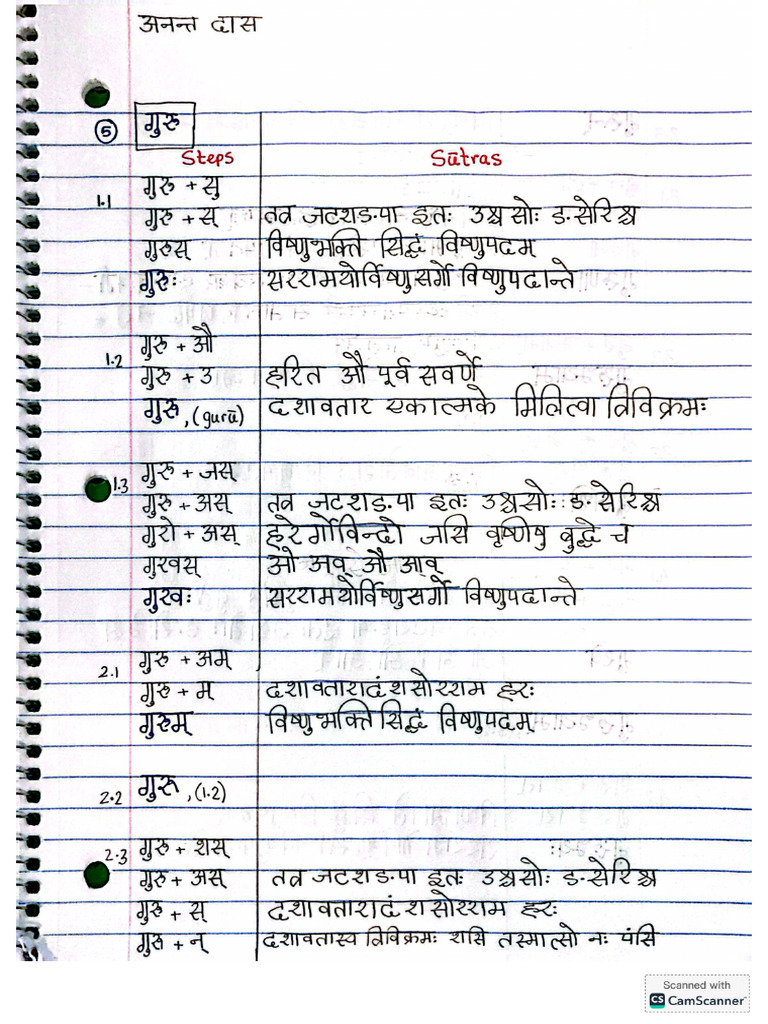 अनन्त दास
⑤ गुरु
Steps Sūtras
1.1 गुरु + सु
गुरु + स् तत्र जटशङपा इतः उश्च सोः ङ-सेरिश्च
गुरुस् विष्णुभक्ति सिद्धं विष्णुपदम्
गुरुः सररामयोर्विष्णुसर्गो विष्णुपदान्ते
1.2 गुरु + औ
गुरु + उ हरित औ पूर्व सवर्णे
गुरु, (gurū) दशावतार एकात्मके मिलित्वा त्रिविक्रमः
1.3 गुरु + जस्
गुरु + अस् तत्र जटशङपा इतः उश्च सोः ङ-सेरिश्च
गुरो + अस् हरेर्गोविन्दो जसि वृष्णीषु बुद्धे च
गुरवस् ओ अव् औ आव्
गुरवः सररामयोर्विष्णुसर्गो विष्णुपदान्ते
2.1 गुरु + अम्
गुरु + म् दशावतारादंशसोरराम हरः
गुरुम् विष्णुभक्ति सिद्धं विष्णुपदम्
2.2 गुरू, (1.2)
2.3 गुरु + शस्
गुरु + अस् तत्र जटशङपा इतः उश्च सोः ङ-सेरिश्च
गुरु + स् दशावतारादंशसोरराम हरः
गुरु + न् दशावतास्व त्रिविक्रमः शसि तस्मात्सो नः पंसि
Scanned with
CS CamScanner